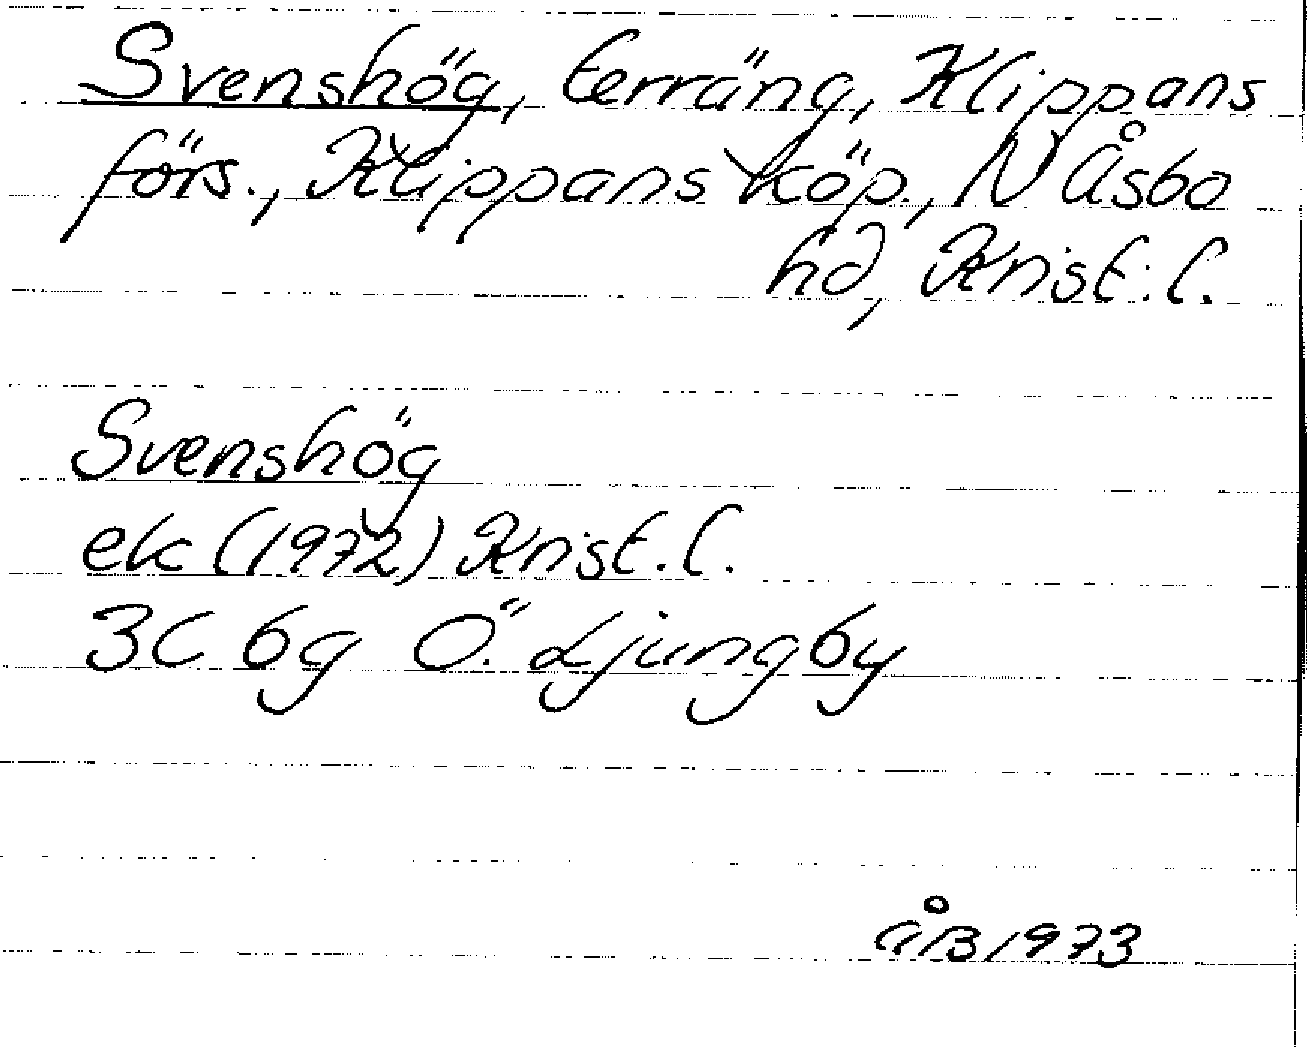 Svenshög, terräng, Klippans
förs., Klippans köp., N Åsbo
hd, Krist. l.
Svenshög
ek (1972) Krist. l.
3C 6g Ö. Ljungby
ÅB 1973